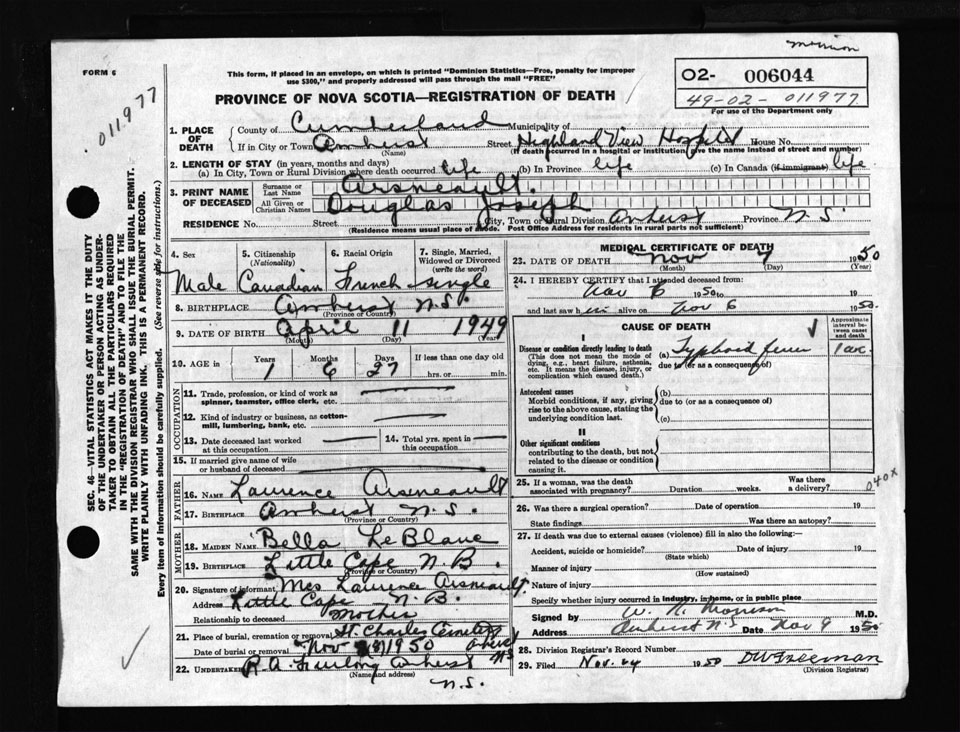 morrison
FORM 6
This form, if placed in an envelope, on which is printed "Dominion Statistics—Free, penalty for improper
use $300," and properly addressed will pass through the mail "FREE"
O2- 006044
49-02- 011977
For use of the Department only
PROVINCE OF NOVA SCOTIA—REGISTRATION OF DEATH
011977
SEC. 46—VITAL STATISTICS ACT MAKES IT THE DUTY
OF THE UNDERTAKER OR PERSON ACTING AS UNDER-
TAKER TO OBTAIN ALL THE PARTICULARS REQUIRED
IN THE "REGISTRATION OF DEATH" AND TO FILE THE
SAME WITH THE DIVISION REGISTRAR WHO SHALL ISSUE THE BURIAL PERMIT.
WRITE PLAINLY WITH UNFADING INK. THIS IS A PERMANENT RECORD.
Every item of information should be carefully supplied. (See reverse side for instructions.)
1. PLACE OF DEATH
County of Cumberland Municipality of
If in City or Town Amherst Street Highland View Hospital House No.
(Name) (If death occurred in a hospital or institution, give the name instead of street and number)
2. LENGTH OF STAY (in years, months and days)
(a) In City, Town or Rural Division where death occurred life (b) In Province life (c) In Canada (if immigrant) life
3. PRINT NAME OF DECEASED
Surname or Last Name Arsneault.
All Given or Christian Names Douglas Joseph
RESIDENCE No. Street City, Town or Rural Division Amherst Province N.S.
(Residence means usual place of abode. Post Office Address for residents in rural parts not sufficient)
4. Sex 5. Citizenship (Nationality) 6. Racial Origin 7. Single, Married, Widowed or Divorced (write the word)
Male Canadian French single
8. BIRTHPLACE Amherst N.S.
(Province or Country)
9. DATE OF BIRTH April 11 1949
(Month) (Day) (Year)
10. AGE Years Months Days If less than one day old
1 6 27 hrs. or min.
OCCUPATION
11. Trade, profession, or kind of work as
spinner, teamster, office clerk, etc.
12. Kind of industry or business, as cotton-
mill, lumbering, bank, etc.
13. Date deceased last worked
at this occupation
14. Total yrs. spent in
this occupation
15. If married give name of wife
or husband of deceased
FATHER
16. NAME Laurence Arsneault
17. BIRTHPLACE Amherst N.S.
(Province or Country)
MOTHER
18. MAIDEN NAME Bella LeBlanc
19. BIRTHPLACE Little Cape N.B.
(Province or Country)
20. Signature of informant Mrs Laurence Arsneault.
Address Little Cape N.B.
Relationship to deceased Mother
21. Place of burial, cremation or removal St. Charles Cemetery
Date of burial or removal Nov 1950 Amherst NS
22. Undertaker R.A. Furlong Amherst
(Name and address)
N.S.
MEDICAL CERTIFICATE OF DEATH
23. DATE OF DEATH Nov 7 1950
(Month) (Day) (Year)
24. I HEREBY CERTIFY that I attended deceased from:
Nov 6 1950 to 19
and last saw him alive on Nov 6 1950.
CAUSE OF DEATH
Approximate interval between onset and death
I
Disease or condition directly leading to death
(This does not mean the mode of
dying, e.g., heart failure, asthenia,
etc. It means the disease, injury, or
complication which caused death.)
(a) Typhoid fever
due to (or as a consequence of)
Antecedent causes
Morbid conditions, if any, giving
rise to the above cause, stating the
underlying condition last.
(b)
due to (or as a consequence of)
(c)
II
Other significant conditions
contributing to the death, but not
related to the disease or condition
causing it.
25. If a woman, was the death
associated with pregnancy? Duration weeks. Was there a delivery?
040X
26. Was there a surgical operation? Date of operation 19
State findings Was there an autopsy?
27. If death was due to external causes (violence) fill in also the following:
Accident, suicide or homicide? Date of injury 19
(State which)
Manner of injury
(How sustained)
Nature of injury
Specify whether injury occurred in industry, in home, or in public place
Signed by W. R. Morrison M.D.
Address Amherst N.S Date Nov 9 1950
28. Division Registrar's Record Number
29. Filed Nov. 24 1950 DW Freeman
(Division Registrar)